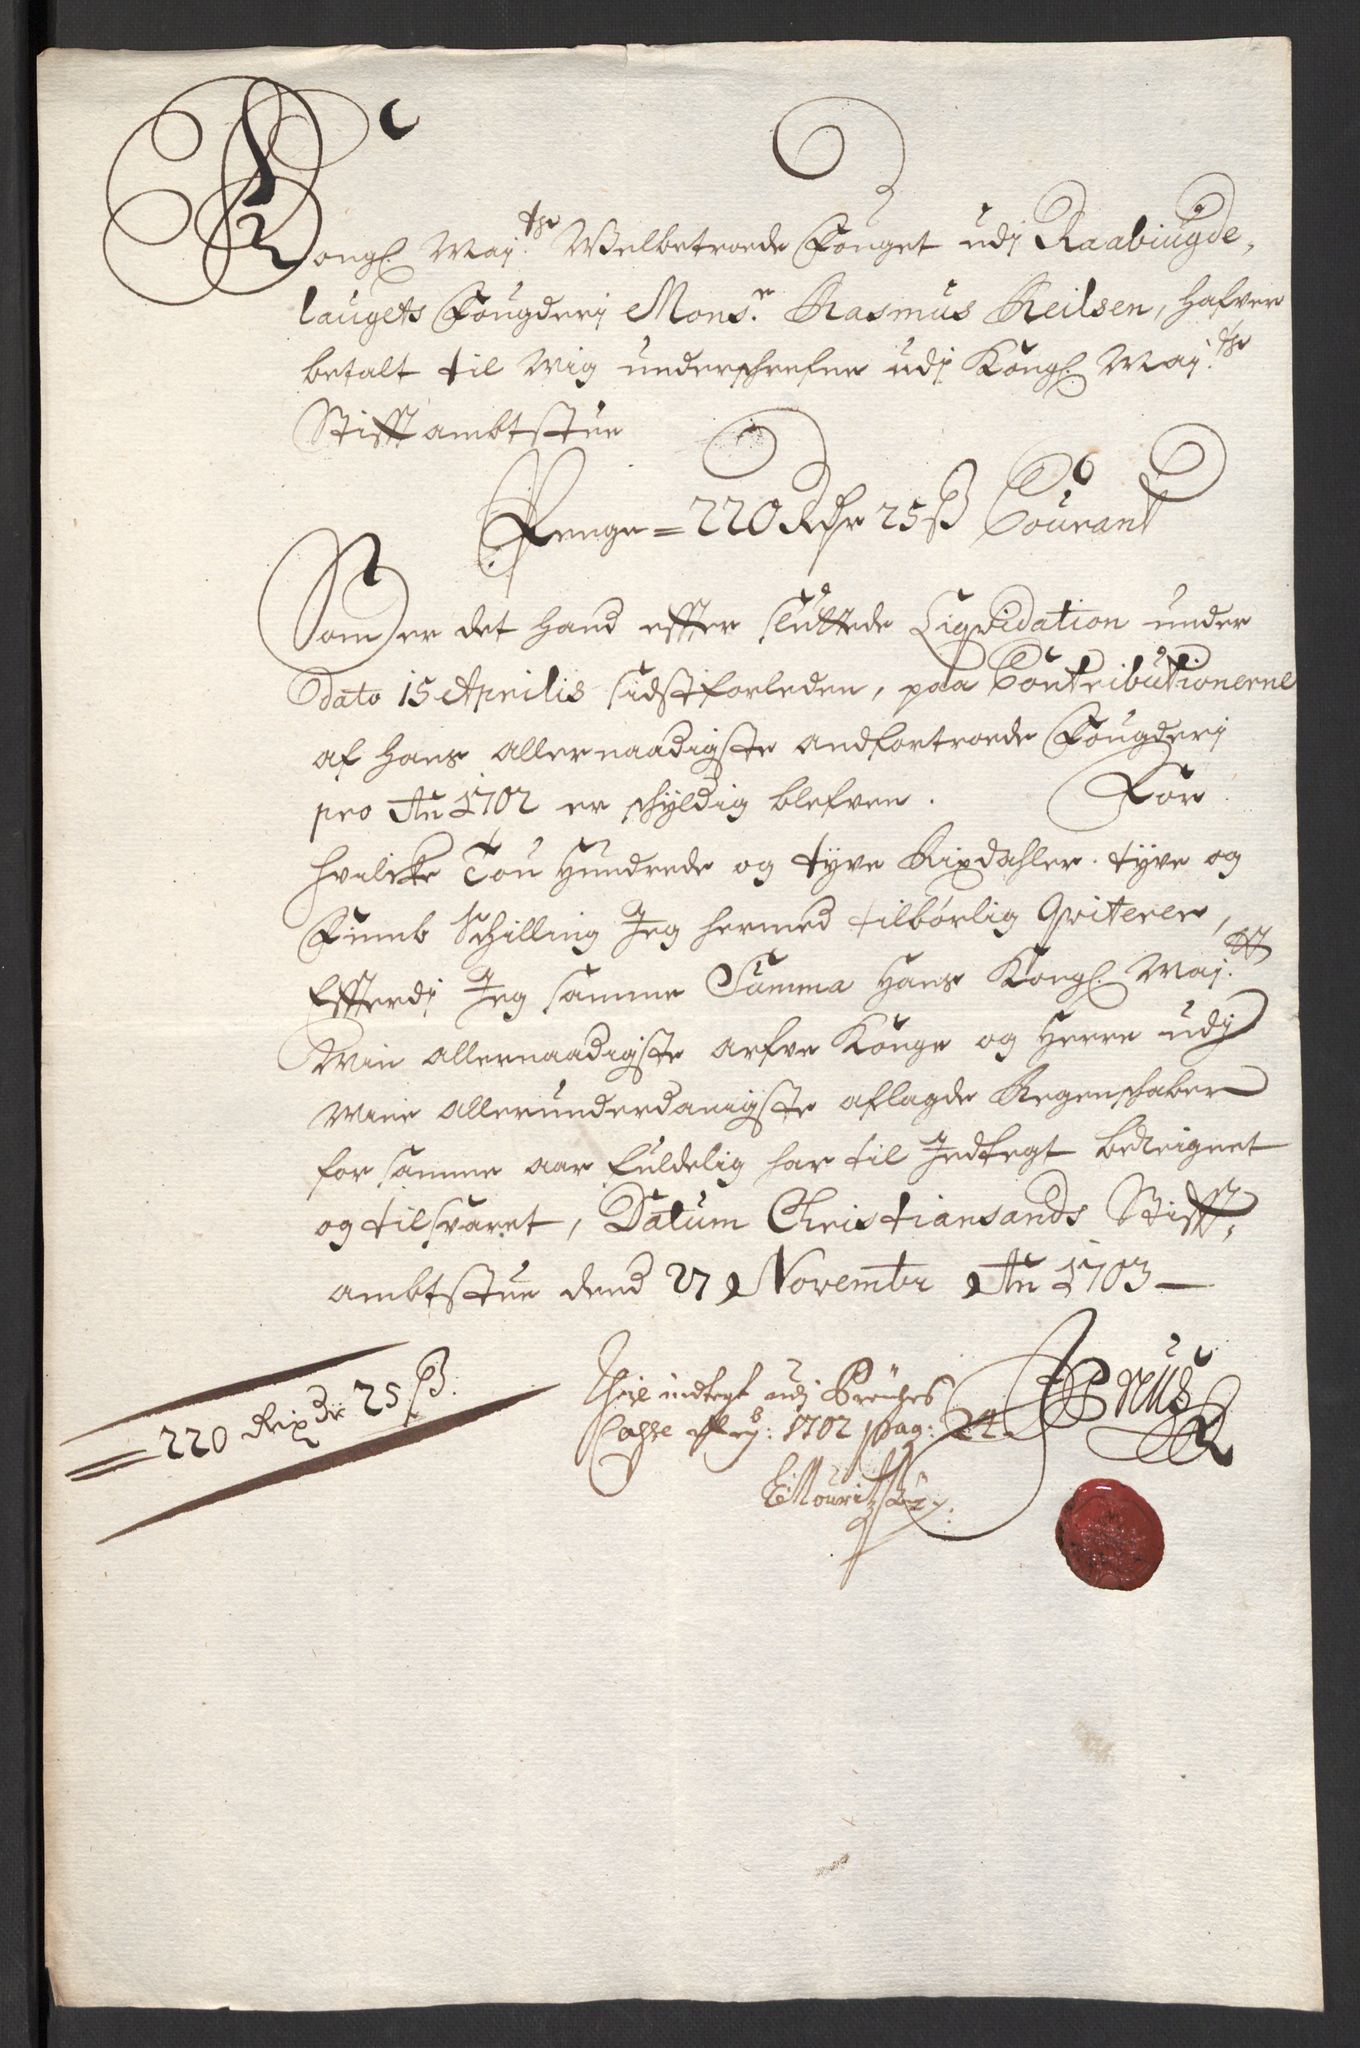 Kongl. Maj.ts Welbetroede Fouget udj Raabiugde,,
laugets Fougderj Mons.r Rasmus Keilsen, hafver
betalt til Mig underschrefne udj Kongl. Maj.ts
Stifft ambtstue
Penge = 220 Rdr 25 ß Courant
Som er det hand effter sluttede Liqvidation under
dato 15 Aprilis sidstforleden, paa Contributionerne
af hans allernaadigste andfortroede Fougderj
pro Ao 1702 er schyldig blefven. For
hvilcke Tou Hundrede og tyve Rixdahler tyve og
Femb Schilling Jeg hermed tilbørlig Qviterer,
Effterdj Jeg samme Summa Hans Kongl. Maj.tt
Min allernaadigste arfve Konge og Herre udj
Mine allerunderdanigste aflagde Regenschaber
for samme aar fuldelig har til Jndtegt bereignet
og tilsvaret, Datum Christiansands Stifft,,
ambtstue dend 27 Novembr Ao 1703
= 220 Rixdr 25 ß.
indtegt udj
Casse 1702 pag: 24.